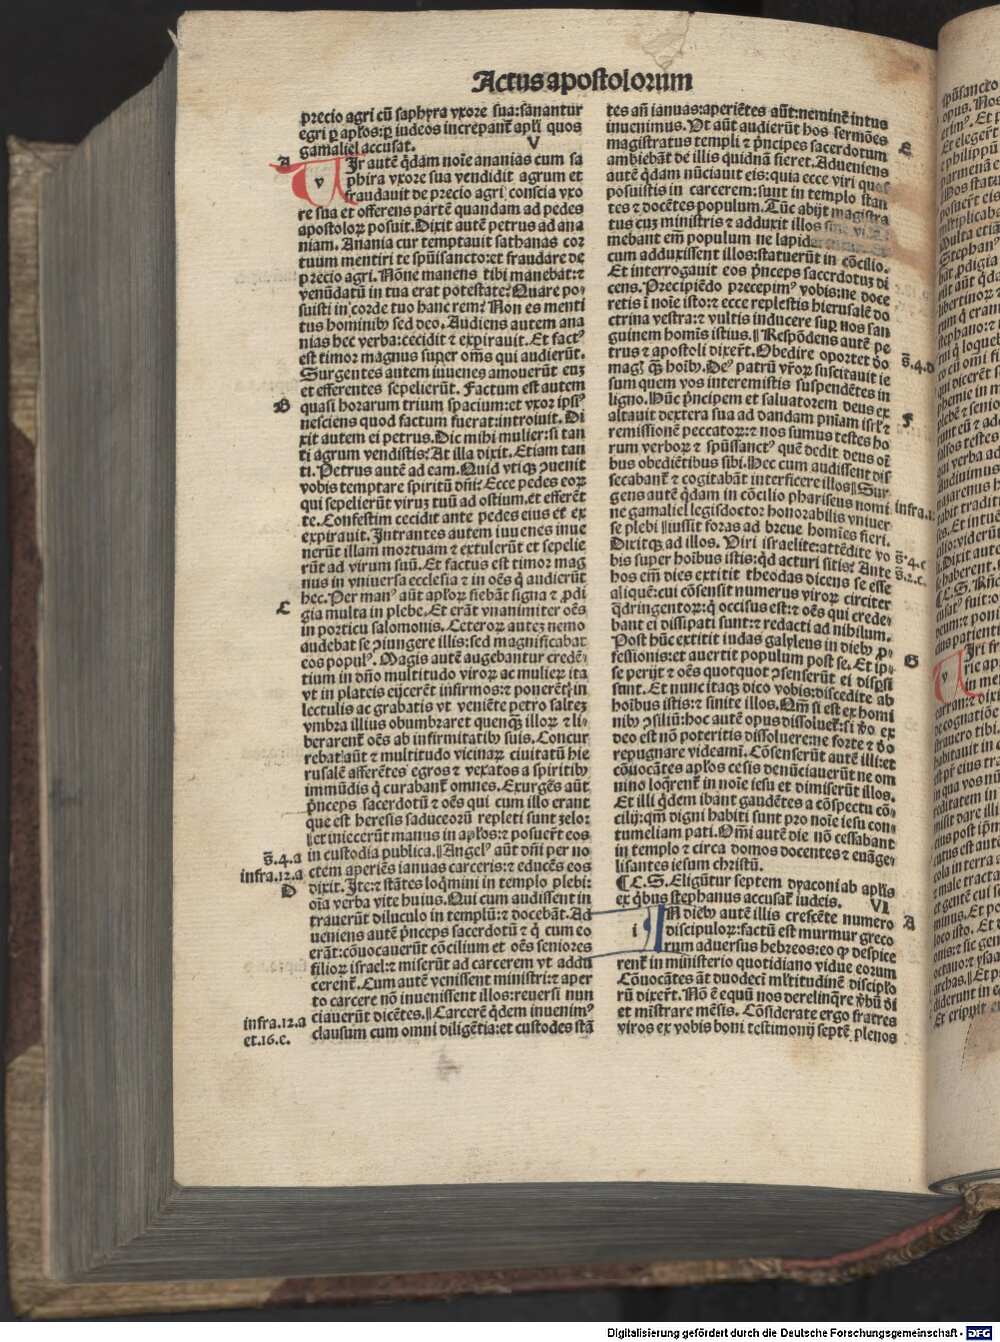 Actus apostolorum
precio agri cū saphyra vxore sua: sanantur
egri ꝑ aplos: ꝑ iudeos increpant᷑ apl̄i quos
gamaliel accusat. V
A
v
Ir autē q̄dam noīe ananias cum sa
phira vxore sua vendidit agrum et
fraudauit de precio agri conscia vxo
re sua et offerens partē quandam ad pedes
apostoloꝝ posuit. Dixit autē petrus ad ana
niam. Anania cur temptauit sathanas cor
tuum mentiri te sp̄uisancto: et fraudare de
precio agri. Nōne manens tibi manebat: ⁊
venūdatū in tua erat potestate? Quare po
suisti in corde tuo hanc rem? Non es menti
tus hominibꝰ sed deo. Audiens autem ana
nias hec verba: cecidit ⁊ expirauit. Et factꝰ
est timor magnus super om̄s qui audierūt.
Surgentes autem iuuenes amouerūt euꝫ
et efferentes sepelierūt. Factum est autem
B
quasi horarum trium spacium: et vxor ipsiꝰ
nesciens quod factum fuerat: introiuit. Di
xit autem ei petrus. Dic mihi mulier: si tan
ti agrum vendistis? At illa dixit. Etiam tan
ti. Petrus autē ad eam. Quid vtiqꝫ ꝯuenit
vobis temptare spiritū dn̄i? Ecce pedes eoꝝ
qui sepelierūt viruꝫ tuū ad ostium. et efferēt
te. Confestim cecidit ante pedes eius et ex
expirauit. Intrantes autem iuuenes inue
nerūt illam mortuam ⁊ extulerūt et sepelie
rūt ad virum suū. Et factus est timor mag
nus in vniuersa ecclesia ⁊ in oēs q̄ audierūt
hec. Per manꝰ aūt aploꝝ fiebāt signa ⁊ ꝓdi
C
gia multa in plebe. Et erāt vnanimiter oēs
in porticu salomonis. Ceteroꝝ auteꝫ nemo
audebat se ꝯiungere illis: sed magnificabat
eos populꝰ. Magis autē augebantur credē
tium in dn̄o multitudo viroꝝ ac mulieꝝ ita
vt in plateis eijcerēt infirmos: ⁊ ponerēt in
lectulis ac grabatis vt veniēte petro salteꝫ
vmbra illius obumbraret quenqꝫ illoꝝ ⁊ li
berarent᷑ oēs ab infirmitatibꝰ suis. Concur
rebat aūt ⁊ multitudo vicinaꝝ ciuitatū hie
rusalē afferētes egros ⁊ vexatos a spiritibꝰ
immūdis q̄ curabant᷑ omnes. Exurgēs aūt
pͥnceps sacerdotū ⁊ oēs qui cum illo erant
que est heresis saduceorū repleti sunt zelo:
et iniecerūt manus in aplos: ⁊ posuer̄t eos
s̄.4.a
in custodia publica. Angelꝰ aūt dn̄i per no
infra.12.a
ctem aperiēs ianuas carceris: ⁊ educēs eos
D
dixit. Ite: ⁊ stātes loq̄mini in templo plebi:
oīa verba vite huius. Qui cum audissent in
trauerūt diluculo in templū: ⁊ docebāt. Ad
ueniens autē pͥnceps sacerdotū ⁊ q̄ cum eo
erāt: cōuocauerūt cōcilium et oēs seniores
filioꝝ israel: ⁊ miserūt ad carcerem vt addu
cerent᷑. Cum autē venissent ministri: ⁊ aper
to carcere nō inuenissent illos: reuersi nun
infra.12.a
ciauerūt dicētes. Carcerē q̄dem inuenimꝰ
et.16.e.
clausum cum omni diligētia: et custodes stā
tes an̄ ianuas: aperiētes aūt: neminē intus
inuenimus. Vt aūt audierūt hos sermōes
E
magistratus templi ⁊ pͥncipes sacerdotum
ambiebāt de illis quidnā fieret. Adueniens
autē q̄dam nūciauit eis: quia ecce viri quos
posuistis in carcerem: sunt in templo stan
tes ⁊ docētes populum. Tūc abijt magistra
tus cuꝫ ministris ⁊ adduxit illos sine vi
mebant em̄ populum ne lapidarentur
cum adduxissent illos: statuerūt in cōcilio.
Et interrogauit eos pͥnceps sacerdotuꝫ di
cens. Precipiēdo precepimꝰ vobis: ne doce
retis ī noīe isto: ⁊ ecce replestis hierusalē do
ctrina vestra: ⁊ vultis inducere suꝑ nos san
guinem homīs istius. Respōdens autē pe
trus ⁊ apostoli dixer̄t. Obedire oportet dō
s̄.4.d
magꝭ qꝫ hoībꝰ. Deꝰ patrū vr̄oꝝ suscitauit ie
sum quem vos interemistis suspendētes in
ligno. Hūc pͥncipem et saluatorem deus ex
F
altauit dextera sua ad dandam pn̄iam isrl̄ ⁊
remissionē peccatoꝝ: ⁊ nos sumus testes ho
rum verboꝝ ⁊ sp̄ussanctꝰ quē dedit deus oī
bus obedietibus sibi. Hec cum audissent dis
secabant᷑ ⁊ cogitabāt interficere illos. Sur
gens autē q̄dam in cōcilio phariseus nomi
infra.
ne gamaliel legisdoctor honorabilis vniuer
se plebi iussit foras ad breue homīes fieri.
Dixitqꝫ ad illos. Viri israelite: attēdite vo
s̄.4.c
bis super hoībus istis: qd̄ acturi sitis? Ante
s̄.2.c.
hos em̄ dies extitit theodas dicens se esse
aliquē: cui cōsensit numerus viroꝝ circiter
q̄dringentoꝝ: q̄ occisus est: ⁊ oēs qui crede
bant ei dissipati sunt: ⁊ redacti ad nihilum.
Post hūc extitit iudas galyleus in diebꝰ ꝓ
G
fessionis: et auertit populum post se. Et ip
se perijt ⁊ oēs quotquot ꝯsenserūt ei disꝑsi
sunt. Et nunc itaqꝫ dico vobis: discedite ab
hoībus istis: ⁊ sinite illos. Qm̄ si est ex homi
nibꝰ ꝯsiliū: hoc autē opus dissoluet᷑: si v̄o ex
deo est nō poteritis dissoluere: ne forte ⁊ dō
repugnare videami. Cōsenserūt autē illi: et
cōuocātes aplos cesis denūciauerūt ne om
nino loq̄rent᷑ in noīe iesu et dimiserūt illos.
Et illi q̄dem ibant gaudētes a cōspectu cō
cilij: qm̄ digni habiti sunt pro noīe iesu con
tumeliam pati. Om̄i autē die nō cessabant
in templo ⁊ circa domos docentes ⁊ euāge
lisantes iesum christū.
¶ C.S. Eligūtur septem dyaconi ab aplis
ex q̄bus stephanus accusat᷑ iudeis. VI
i
N diebꝰ autē illis crescēte numero
A
discipuloꝝ: factū est murmur greco
rum aduersus hebreos: eo ꝙ despice
rent᷑ in ministerio quotidiano vidue eorum
Cōuocātes āt duodecī ml̄titudinē discipło
rū dixer̄t. Nō ē equū nos derelinq̄re v̄bū d̄i
et mīstrare mēsis. Cōsiderate ergo fratres
viros ex vobis boni testimonij septē plenos
Digitalisierung gefördert durch die Deutsche Forschungsgemeinschaft - DFG